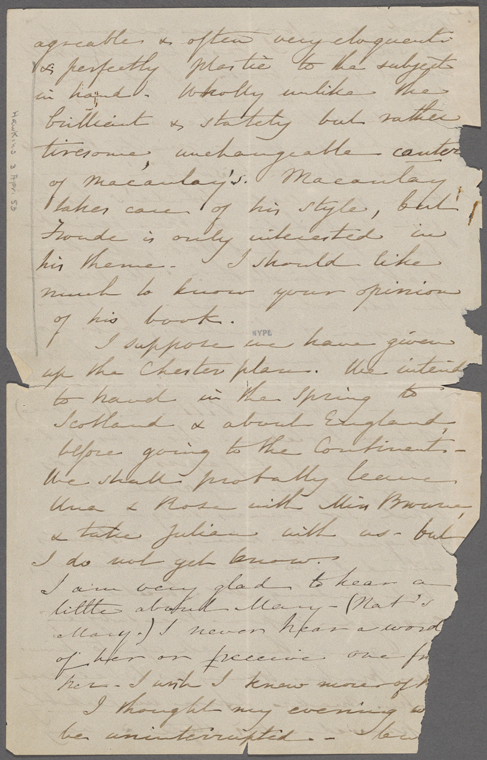 agreeable & often very eloquent
& perfectly plastic to the subject
in hand. Wholly unlike the
brilliant & stately but rather
tiresome, unchangeable canter
of Macaulay's. Macaulay
takes care of his style, but
Froude is only interested in
his theme. I should like
much to know your opinion
of his book.
NYPL
I suppose we have given
up the Chester plan. We intend
to travel in the Spring to
Scotland & about England,
before going to the Continent -
We shall probably leave
Una & Rose with Miss Browne,
& take Julian with us - but
I do not yet know.
I am very glad to hear a
little about Mary - (Nat's
Mary.) I never hear a word
of her or receive one fr
her - I wish I knew more of h
I thought my evening w
be uninterrupted. -